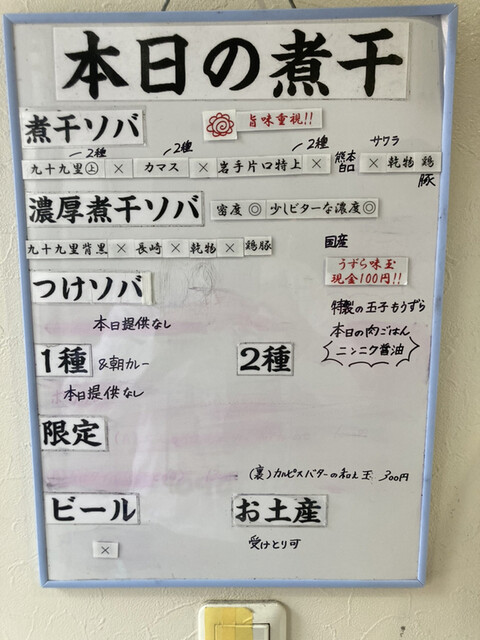 本日の煮干
煮干ソバ 旨味重視!!
2種 2種 2種 サワラ
九十九里㊤ × カマス × 岩手片口特上 × 熊本白口 × 乾物 鶏豚
濃厚煮干ソバ 密度◎ 少しビターな濃度◎
九十九里背黒 × 長崎 × 乾物 × 鶏豚
国産
うずら味玉
現金100円!!
つけソバ
本日提供なし
特製の玉子もうずら
本日の肉ごはん
ニンニク醤油
1種 &朝カレー
本日提供なし
2種
限定
(裏)カルピスバターの和え玉 300円
ビール
×
お土産
受けとり可